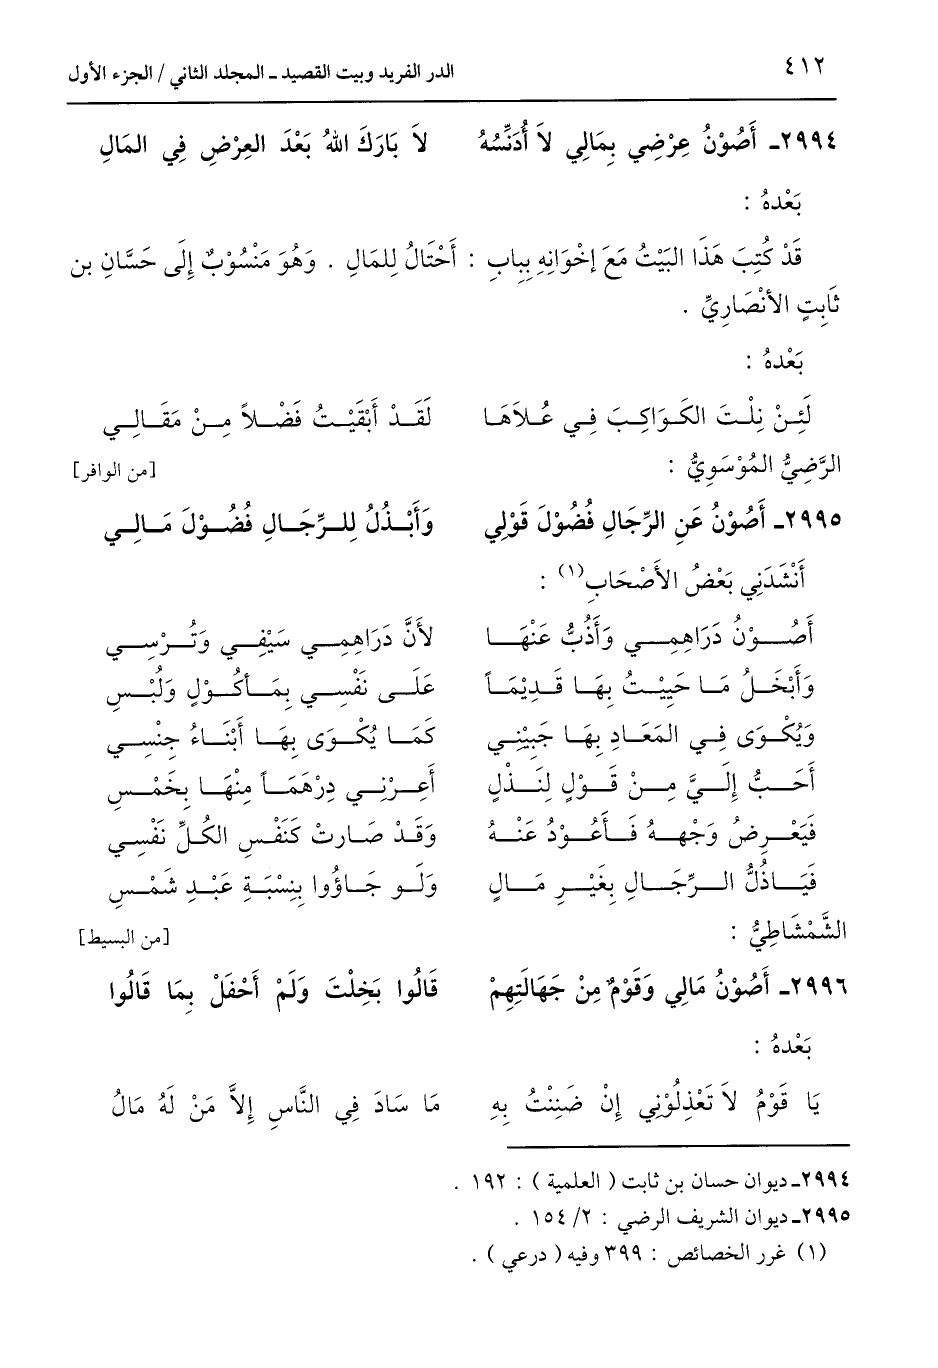 ٤١٢ الدر الفريد وبيت القصيد ـ المجلد الثاني / الجزء الأول
٢٩٩٤ـ أَصُوْنُ عِرْضِي بِمَالِي لاَ أُدَنِّسُهُ لاَ بَارَكَ اللهُ بَعْدَ العِرْضِ فِي المَالِ
بَعْدهُ :
قَدْ كُتِبَ هَذَا البَيْتُ مَعَ إخْوَانِهِ بِبابِ : أَحْتَالُ لِلمَالِ . وَهُوَ مَنْسُوْبٌ إلَى حَسَّانِ بن
ثَابِتٍ الأنْصَارِيِّ .
بَعْدهُ :
لَئِنْ نِلْتَ الكَوَاكِبَ فِي عُلاَهَا لَقَدْ أَبْقَيْتُ فَضْلاً مِنْ مَقَالِي
الرَّضِيُّ المُوْسَوِيُّ : [من الوافر]
٢٩٩٥ـ أَصُوْنُ عَنِ الرِّجَالِ فُضُوْلَ قَوْلِي وَأَبْذُلُ لِلرِّجَالِ فُضُوْلَ مَالِي
أَنْشَدَنِي بَعْضُ الأَصْحَابِ(١) :
أَصُوْنُ دَرَاهِمِي وَأَذُبُّ عَنْهَا لأَنَّ دَرَاهِمِي سَيْفِي وَتُرْسِي
وَأَبْخَلُ مَا حَيِيْتُ بِهَا قَدِيْمَاً عَلَى نَفْسِي بِمَأكُوْلٍ وَلُبْسِ
وَيُكْوَى فِي المَعَادِ بِهَا جَبِيْنِي كَمَا يُكْوَى بِهَا أَبْنَاءُ جِنْسِي
أَحَبُّ إِلَيَّ مِنْ قَوْلٍ لِنَذْلٍ أَعِرْنِي دِرْهَمَاً مِنْهَا بِخَمْسِ
فَيَعْرِضُ وَجْهِهُ فَأَعُوْدُ عَنْهُ وَقَدْ صَارتْ كَنَفْسِ الكُلِّ نَفْسِي
فَيَاذُلُّ الرِّجَالِ بِغَيْرِ مَالٍ وَلَو جَاؤُوا بِنِسْبَةِ عَبْدِ شَمْسِ
الشَّمْشَاطِيُّ : [من البسيط]
٢٩٩٦ـ أَصُوْنُ مَالِي وَقَوْمٌ مِنْ جَهَالَتِهِمْ قَالُوا بَخِلْتَ وَلَمْ أَحْفَلْ بِمَا قَالُوا
بَعْدهُ :
يَا قَوْمُ لاَ تَعْذِلُوْنِي إنْ ضَنِنْتُ بِهِ مَا سَادَ فِي النَّاسِ إلاَّ مَنْ لَهُ مَالُ
٢٩٩٤ـ ديوان حسان بن ثابت ( العلمية ) : ١٩٢ .
٢٩٩٥ـ ديوان الشريف الرضي : ٢/ ١٥٤ .
(١) غرر الخصائص : ٣٩٩ وفيه ( درعي ) .